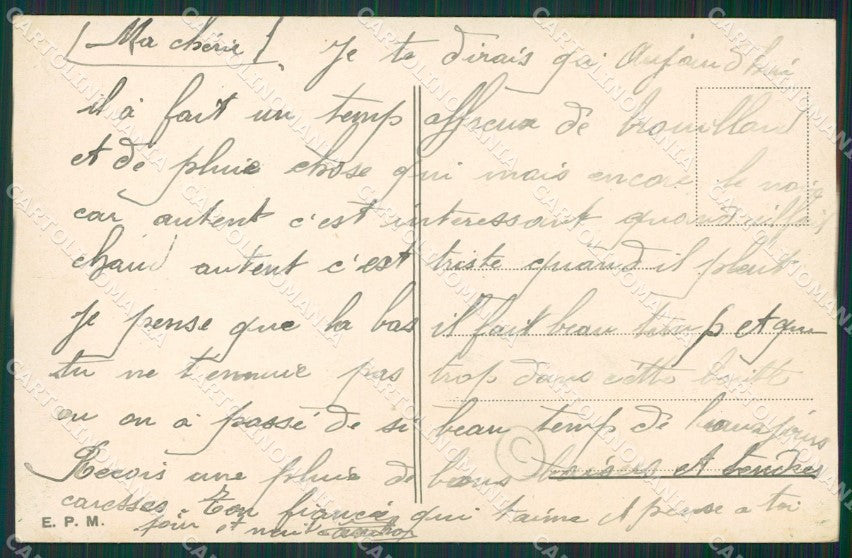 Ma chérie Je te dirais qui Aujourd'hui
il à fait un temp affreux de brouillard
et de pluie chose qui mais encore le noir
car autent c'est interessant quand il fait
chaud autent c'est triste quand il pleut
Je pense que la bas il fait beau temp et que
tu ne t'ennuie pas trop dans cette
ou on à passé de si beau temp de beaux jours
Recois une pluie de bons baisers et tendres
caresses Ton fiancé qui t'aime et pense a toi
E. P. M. soir et nuit
CARTOLINOMANIA